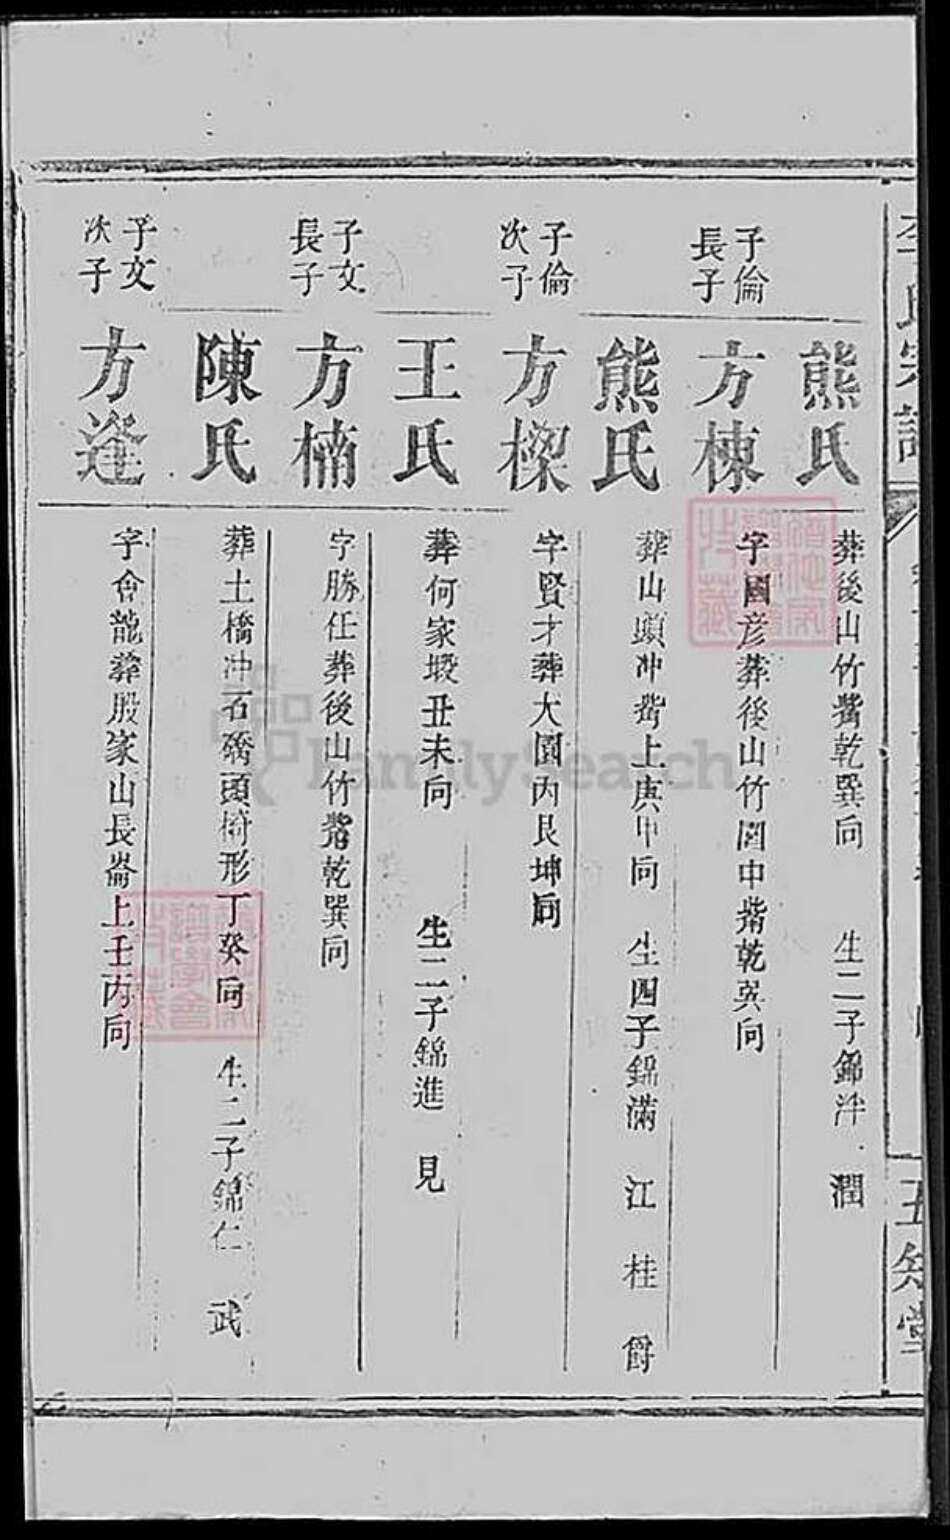 李氏宗譜
五知堂
熊氏
葬後山竹觜乾巽向 生二子錦泮 潤
子倫長子
方棟
字國彥葬後山竹園中觜乾巽向
熊氏
葬山頭冲觜上庚甲向 生四子錦滿 江 桂 爵
子倫次子
方樑
字賢才葬大園內艮坤向
王氏
葬何家塅丑未向 生二子錦進 見
子文長子
方楠
字勝任葬後山竹觜乾巽向
陳氏
葬土橋冲石磡頭椅形丁癸向 生二子錦仁 武
子文次子
方逢
字會龍葬殷家山長崙上壬丙向
FamilySearch